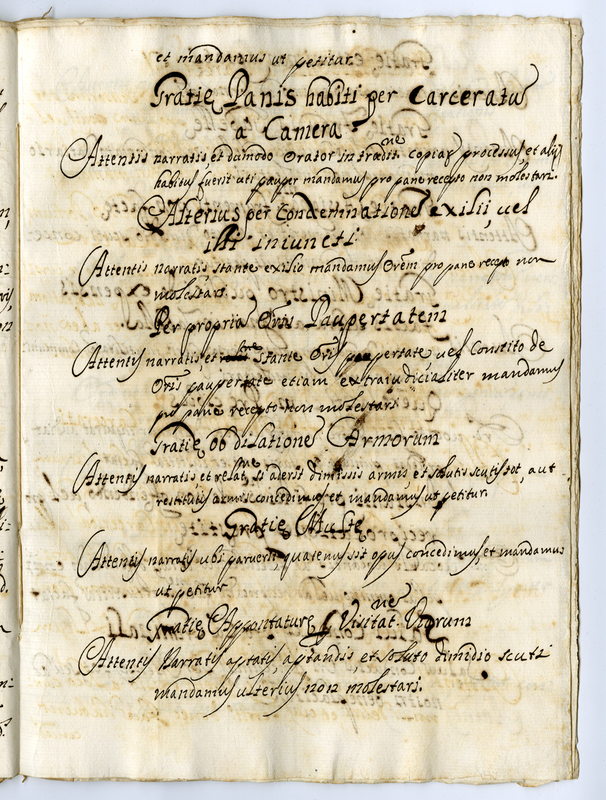 et mandamus ut petitar.
Gratię Panis habiti per Carceratū
à Camera
Attentis narratis, et dūmodo Orator in tradit.ne copiar processus, et alijs
habitus fuerit uti pauper mandamus pro pane recepto non molestari.
Alterius per Condemnationē exilij, vel
illi iniuncti
Attentis narratis, stante exilio mandamus Orēm pro pane recepto non
molestari.
Per propriā Oris Paupertatem
Attentis narratis et stante Oris paupertate vel Constito de
Oris paupertate etiam extraiudicialiter mandamus
pro pane recepto non molestari
Gratię ob dilationē Armorum
Attentis narratis et relat.ne, si aderit dimissis armis et solutis scutis tot, aut
restitutis armis concedimus et mandamus ut petitur.
Gratię Mulctę
Attentis narratis ubi paruerit, quatenus sit opus concedimus, et mandamus
ut petitur
Gratię Appontaturę Visitat.ne Viarum
Attentis Narratis aptatis, aptandis et soluto dimidio scuti
mandamus ulterius non molestari.